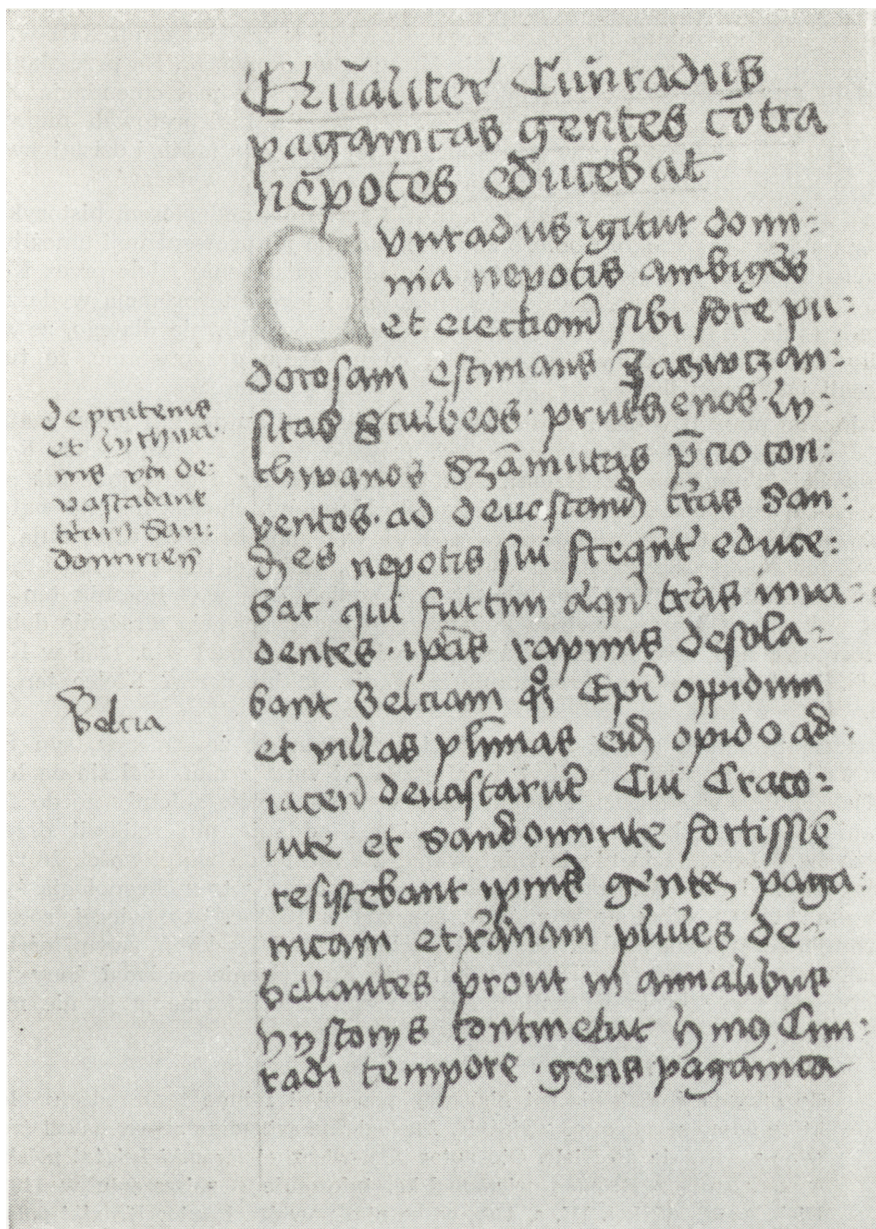 Qualiter Cunradus
paganicas gentes cōtra
nepotes educebat
Cunradus igitur domi:
nia nepotis ambigēs
et eiectionē sibi fore pu:
dorosam estimans Jaczwczan:
sitas Sculbeos · prutenos · ly:
thwanos Szamutas p̄cio con:
ventos · ad devastand tr̄as San:
d es nepotis sui freqn̄t educe:
bat · qui furtim tr̄as inva:
dentes · ip̄as rapinis desola:
bant Belciam Ep̄i oppidum
et villas pl̄imas eid opido ad:
iacen̄ devastarūt Cui Craco:
vite et Sandomirite fortissīe
resistebant gente paga:
nicam et xr̄ianam plures de:
bellantes prout in annalibus
hystoriis continetur hmo Cun:
radi tempore · gens paganica
de prutenis
et lythwa:
nis de:
vastabant
tr̄am San:
domirien̄
Belcia